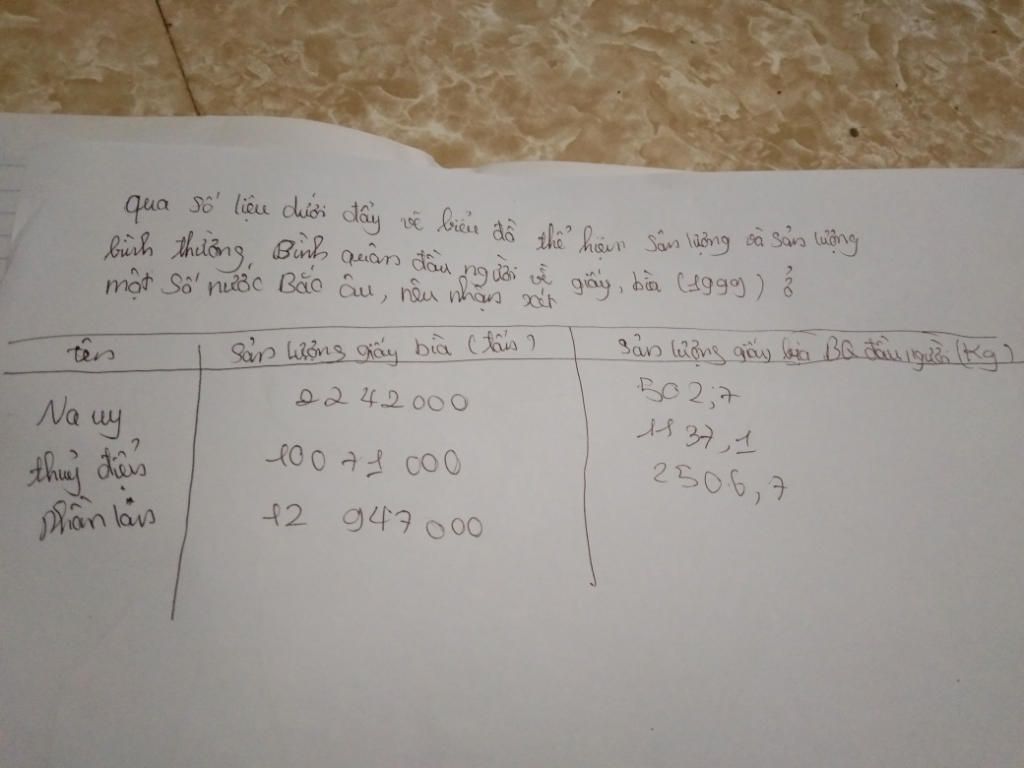 qua số liệu dưới đây vẽ biểu đồ thể hiện sản lượng và sản lượng
bình thường, Bình quân đầu người về giấy, bìa (1999)?
một số nước Bắc âu, nêu nhận xét
tên sản lượng giấy bìa (tấn) sản lượng giấy bìa BQ đầu người (Kg)
Na uy 2242000 502,7
thuỷ điển 10071 000 1137,1
phần lan 12 947000 2506,7